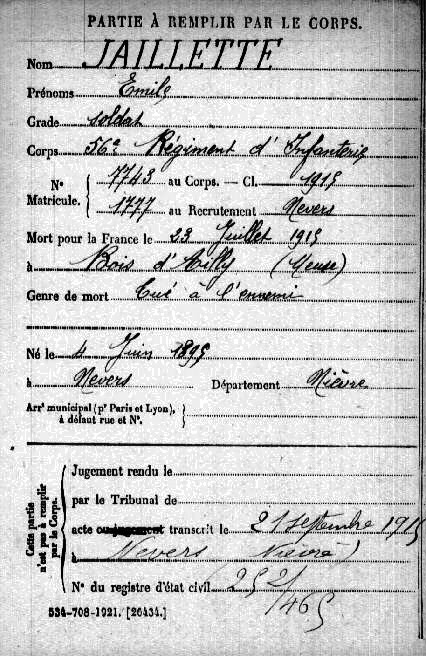 PARTIE À REMPLIR PAR LE CORPS.
Nom JAILLETTE
Prénoms Emile
Grade soldat
Corps 56e Régiment d'Infanterie
N° Matricule. { 7743 au Corps. — Cl. 1915
1777 au Recrutement Nevers
Mort pour la France le 23 Juillet 1915
à Bois d'Ailly (Meuse)
Genre de mort Tué à l'ennemi
Né le 4 Juin 1895
à Nevers Département Nièvre
Arrt municipal (pr Paris et Lyon), à défaut rue et N°. }
Cette partie n'est pas à remplir par le Corps.
Jugement rendu le
par le Tribunal de
acte ou jugement transcrit le 21 septembre 1915
à Nevers Nièvre)
N° du registre d'état civil 2521
/465
534-708-1921. [26434.]